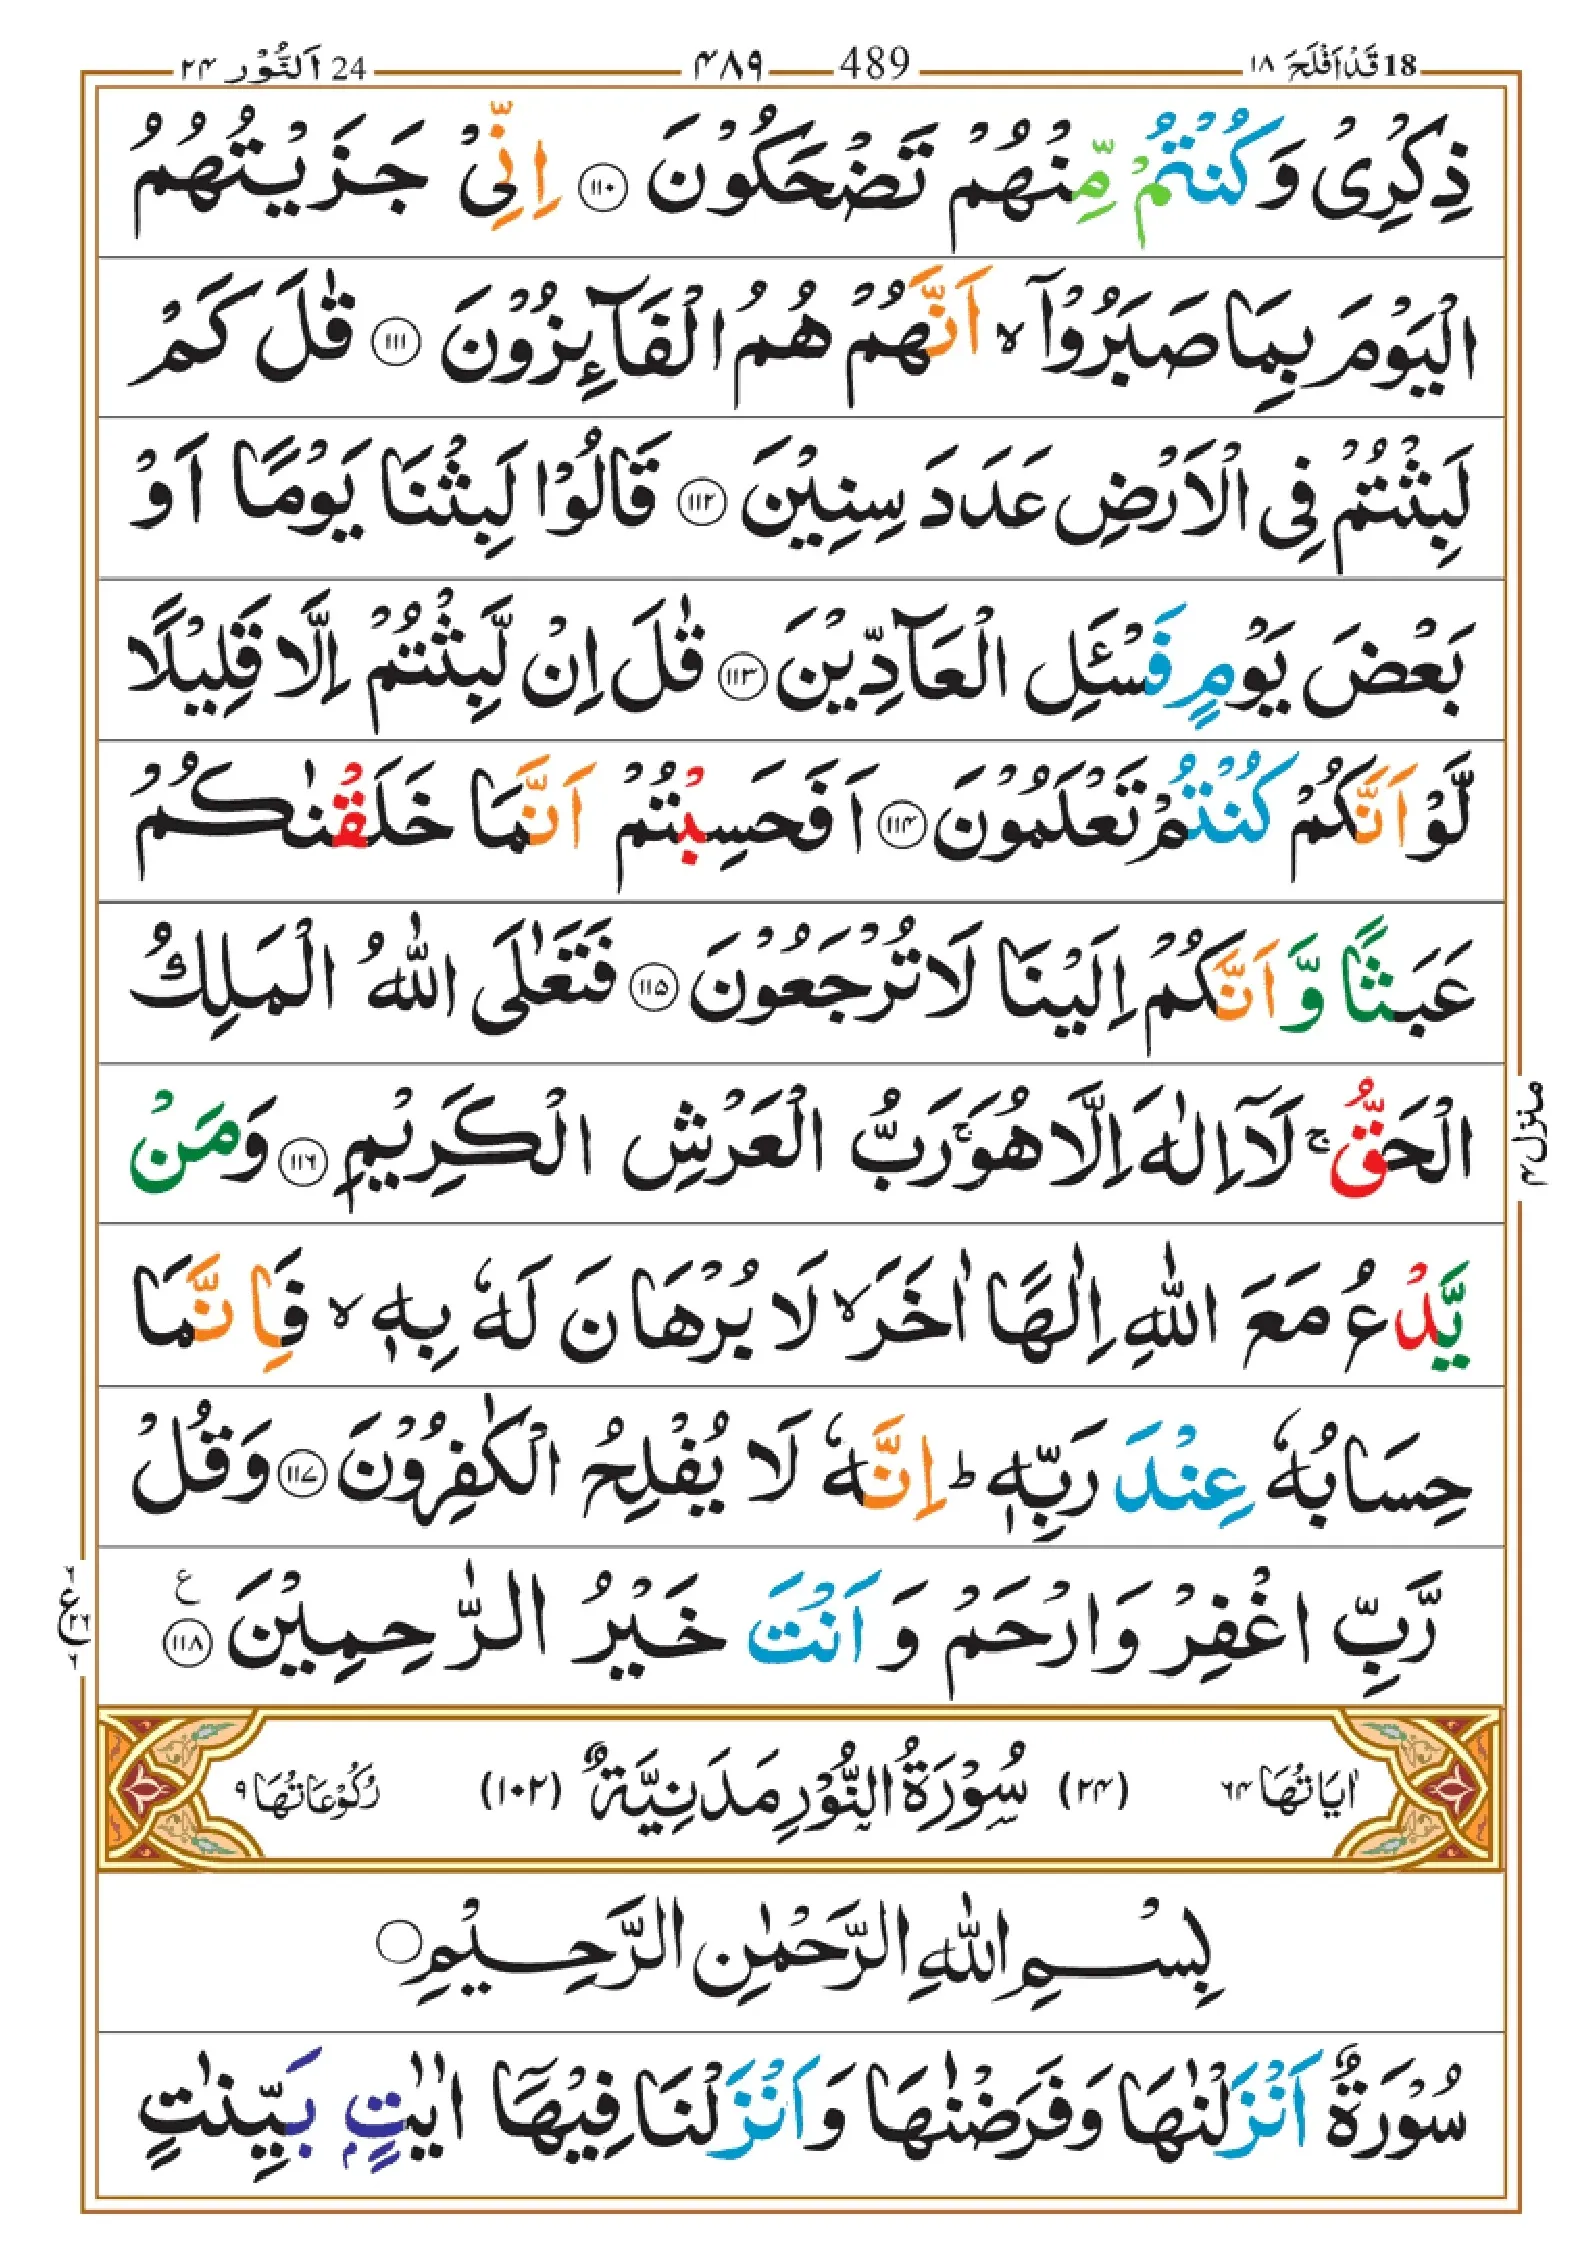 18 قَدْ اَفْلَحَ ١٨ 489 ۴۸۹ 24 اَلنُّوْر ۲۴
ذِكْرِىْ وَكُنْتُمْ مِّنْهُمْ تَضْحَكُوْنَ ۝۱۱۰ اِنِّىْ جَزَيْتُهُمُ
الْيَوْمَ بِمَا صَبَرُوْۤا ۙ اَنَّهُمْ هُمُ الْفَآئِزُوْنَ ۝۱۱۱ قٰلَ كَمْ
لَبِثْتُمْ فِى الْاَرْضِ عَدَدَ سِنِيْنَ ۝۱۱۲ قَالُوْا لَبِثْنَا يَوْمًا اَوْ
بَعْضَ يَوْمٍ فَسْئَلِ الْعَآدِّيْنَ ۝۱۱۳ قٰلَ اِنْ لَّبِثْتُمْ اِلَّا قَلِيْلًا
لَّوْ اَنَّكُمْ كُنْتُمْ تَعْلَمُوْنَ ۝۱۱۴ اَفَحَسِبْتُمْ اَنَّمَا خَلَقْنٰكُمْ
عَبَثًا وَّاَنَّكُمْ اِلَيْنَا لَا تُرْجَعُوْنَ ۝۱۱۵ فَتَعٰلَى اللّٰهُ الْمَلِكُ
الْحَقُّ ۚ لَاۤ اِلٰهَ اِلَّا هُوَ ۚ رَبُّ الْعَرْشِ الْكَرِيْمِ ۝۱۱۶ وَمَنْ
يَّدْعُ مَعَ اللّٰهِ اِلٰهًا اٰخَرَ ۙ لَا بُرْهَانَ لَهٗ بِهٖ ۙ فَاِنَّمَا
حِسَابُهٗ عِنْدَ رَبِّهٖ ؕ اِنَّهٗ لَا يُفْلِحُ الْكٰفِرُوْنَ ۝۱۱۷ وَقُلْ
رَّبِّ اغْفِرْ وَارْحَمْ وَاَنْتَ خَيْرُ الرّٰحِمِيْنَ ۝۱۱۸ ع
منزل۴
۶ ع ۲۶ ۶
اٰيَاتُهَا ۶۴ (۲۴) سُوْرَةُ النُّوْرِ مَدَنِيَّةٌ (۱۰۲) رُكُوْعَاتُهَا ۹
بِسْمِ اللّٰهِ الرَّحْمٰنِ الرَّحِيْمِ ۝
سُوْرَةٌ اَنْزَلْنٰهَا وَفَرَضْنٰهَا وَاَنْزَلْنَا فِيْهَاۤ اٰيٰتٍۭ بَيِّنٰتٍ